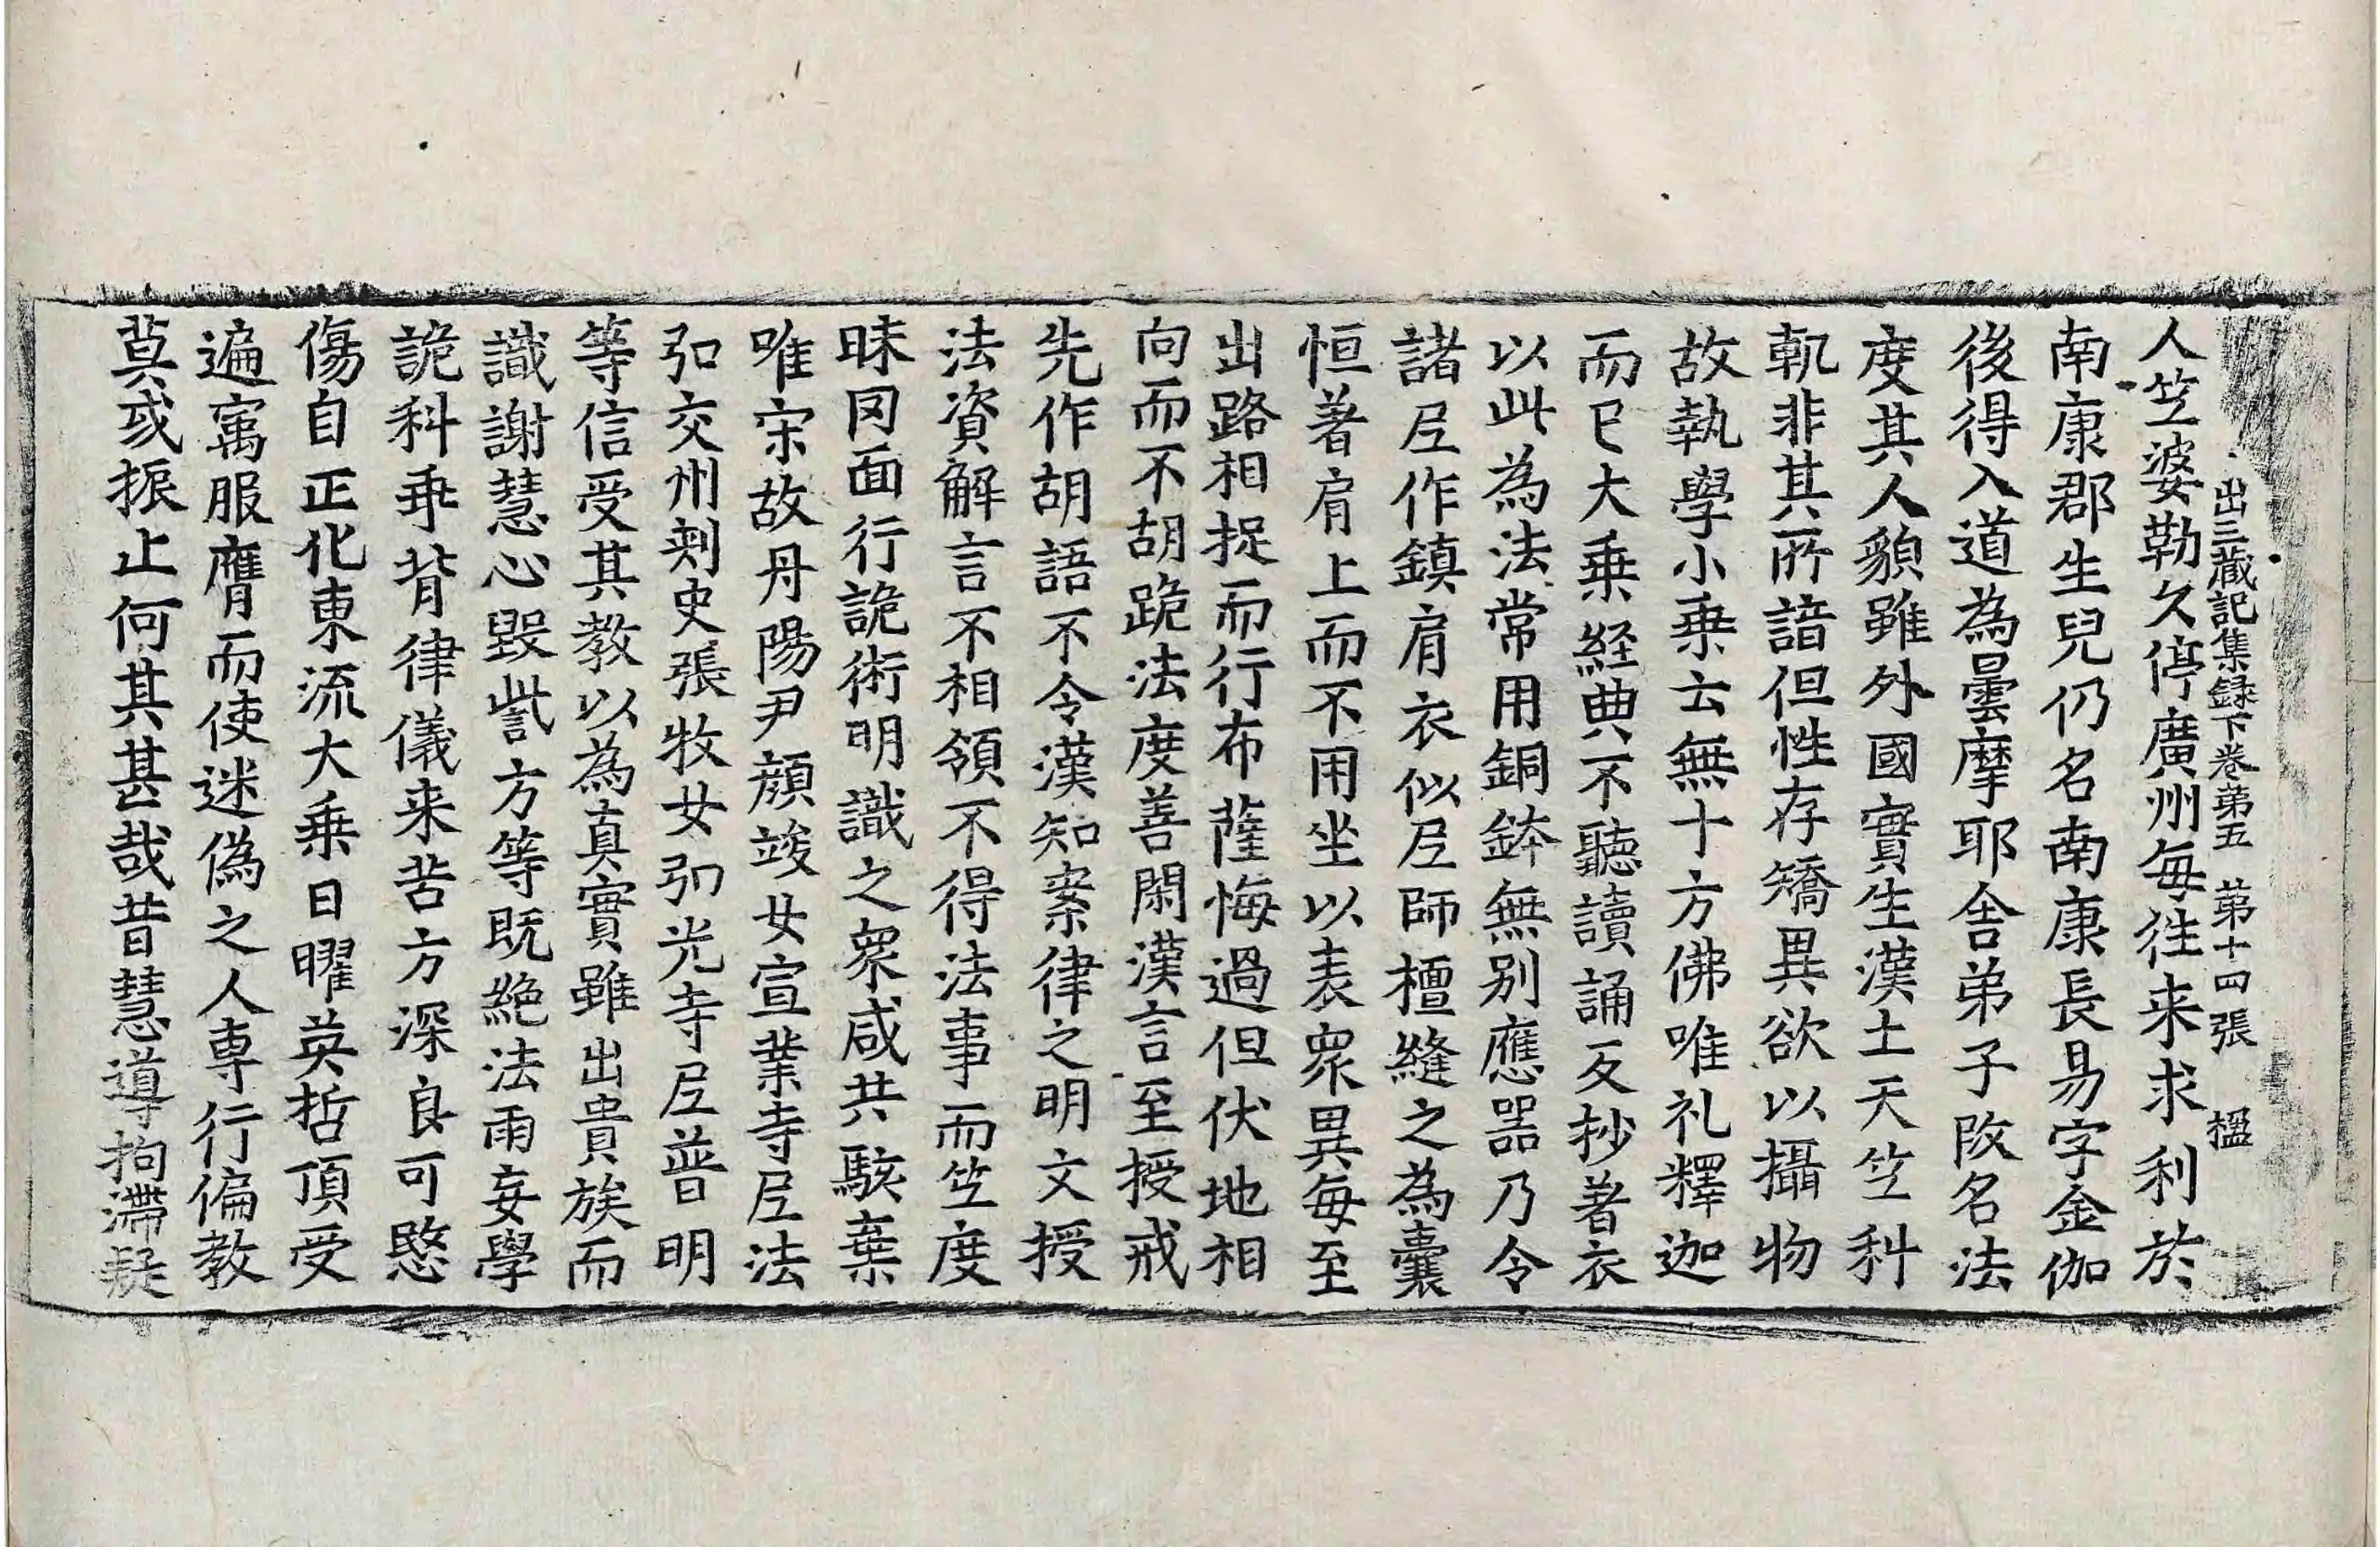 出三藏記集録下卷第五 第十四張 楹
人竺婆勒久停廣州每往来求利於
南康郡生兒仍名南康長易字金伽
後得入道為曇摩耶舍弟子改名法
度其人貌雖外國實生漢土天竺科
軌非其所諳但性存矯異欲以攝物
故執學小乗云無十方佛唯礼釋迦
而已大乗経典不聽讀誦反抄著衣
以此為法常用銅鉢無别應器乃令
諸尼作鎮肩衣似尼師檀縫之為囊
恒著肩上而不用坐以表衆異每至
出路相捉而行布薩悔過但伏地相
向而不胡跪法度善閑漢言至授戒
先作胡語不令漢知案律之明文授
法資解言不相領不得法事而竺度
昧罔面行詭術明識之衆咸共駭棄
唯宋故丹陽尹顔竣女宣業寺尼法
弘交州刺史張牧女弘光寺尼普明
等信受其教以為真實雖出貴族而
識謝慧心毀訾方等既絶法雨妄學
詭科乖背律儀来苦方深良可愍
傷自正化東流大乗日曜英哲頂受
遍寓服膺而使迷偽之人専行偏教
莫或振止何其甚哉昔慧導拘滯疑